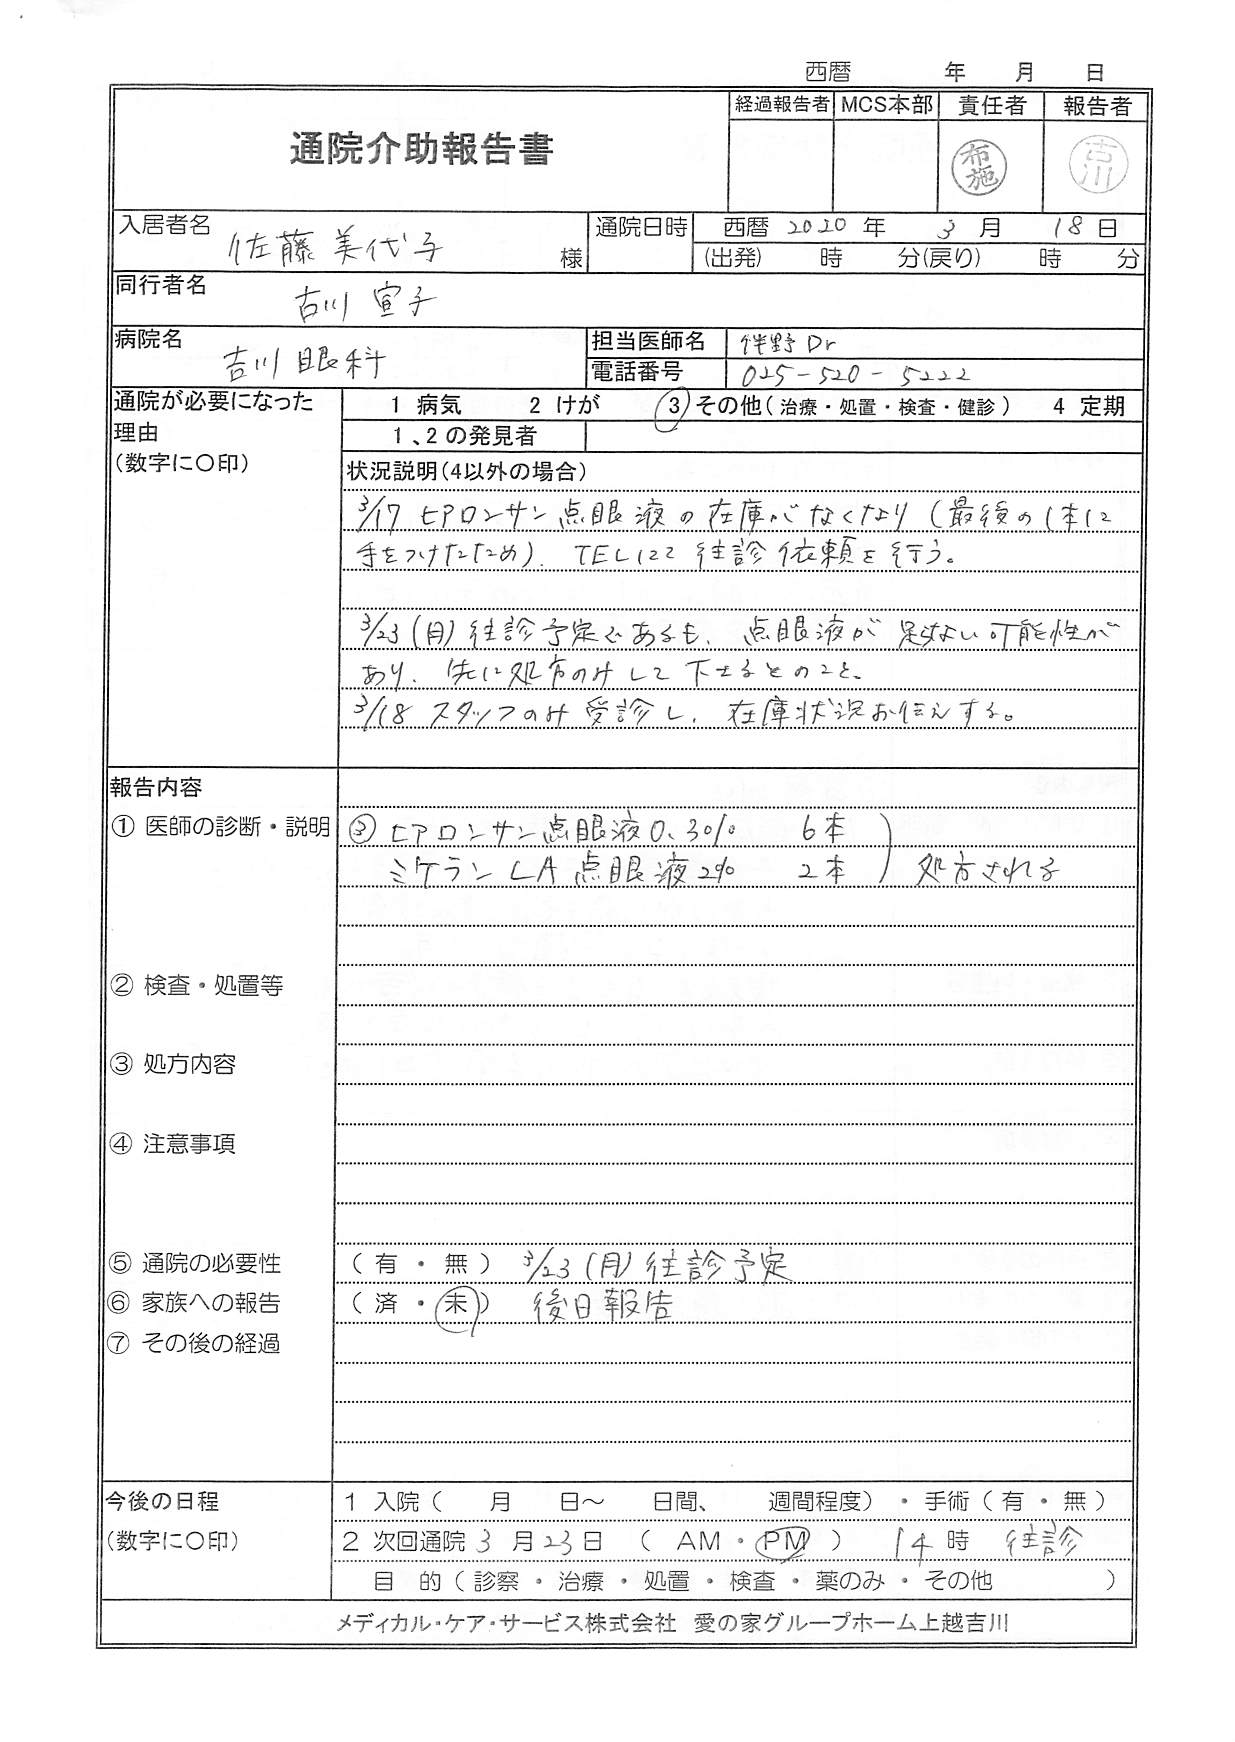 西暦 年 月 日
経過報告者 MCS本部 責任者 報告者
通院介助報告書
布施 古川
入居者名 佐藤 美代子 様
通院日時 西暦 2020 年 3 月 18 日
(出発) 時 分(戻り) 時 分
同行者名 古川 宣子
病院名 吉川眼科
担当医師名 伴野Dr
電話番号 025-520-5222
通院が必要になった理由
(数字に〇印)
1 病気 2 けが ③ その他(治療・処置・検査・健診) 4 定期
1、2の発見者
状況説明(4以外の場合)
3/17 ヒアロンサン点眼液の在庫がなくなり(最後の1本に
手をつけたため)、TELにて往診依頼を行う。
3/23(月)往診予定であるも、点眼液が足りない可能性が
あり、先に処方のみして下さるとのこと。
3/18 スタッフのみ受診し、在庫状況お伝えする。
報告内容
① 医師の診断・説明
③ ヒアロンサン点眼液0.3% 6本
ミケランLA点眼液2% 2本 ) 処方される
② 検査・処置等
③ 処方内容
④ 注意事項
⑤ 通院の必要性 ( 有 ・ 無 ) 3/23(月)往診予定
⑥ 家族への報告 ( 済 ・ 未 ) 後日報告
⑦ その後の経過
今後の日程
(数字に〇印)
1 入院( 月 日～ 日間、 週間程度) ・ 手術( 有 ・ 無 )
2 次回通院 3 月 23 日 ( AM ・ PM ) 14 時 往診
目 的( 診察 ・ 治療 ・ 処置 ・ 検査 ・ 薬のみ ・ その他 )
メディカル・ケア・サービス株式会社 愛の家グループホーム上越吉川